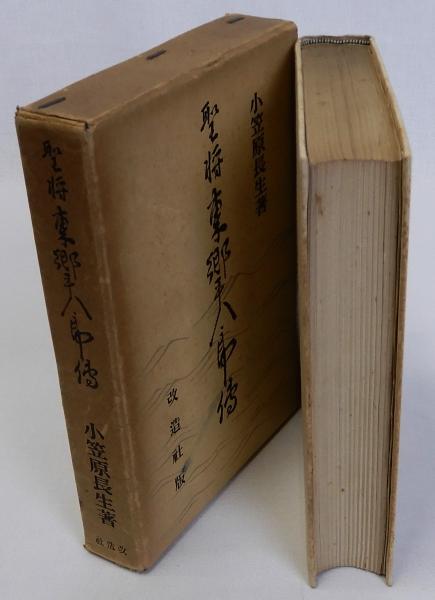 聖将東郷平八郎傳
小笠原長生著
改造社
小笠原長生著
聖将東郷平八郎傳
改造社版